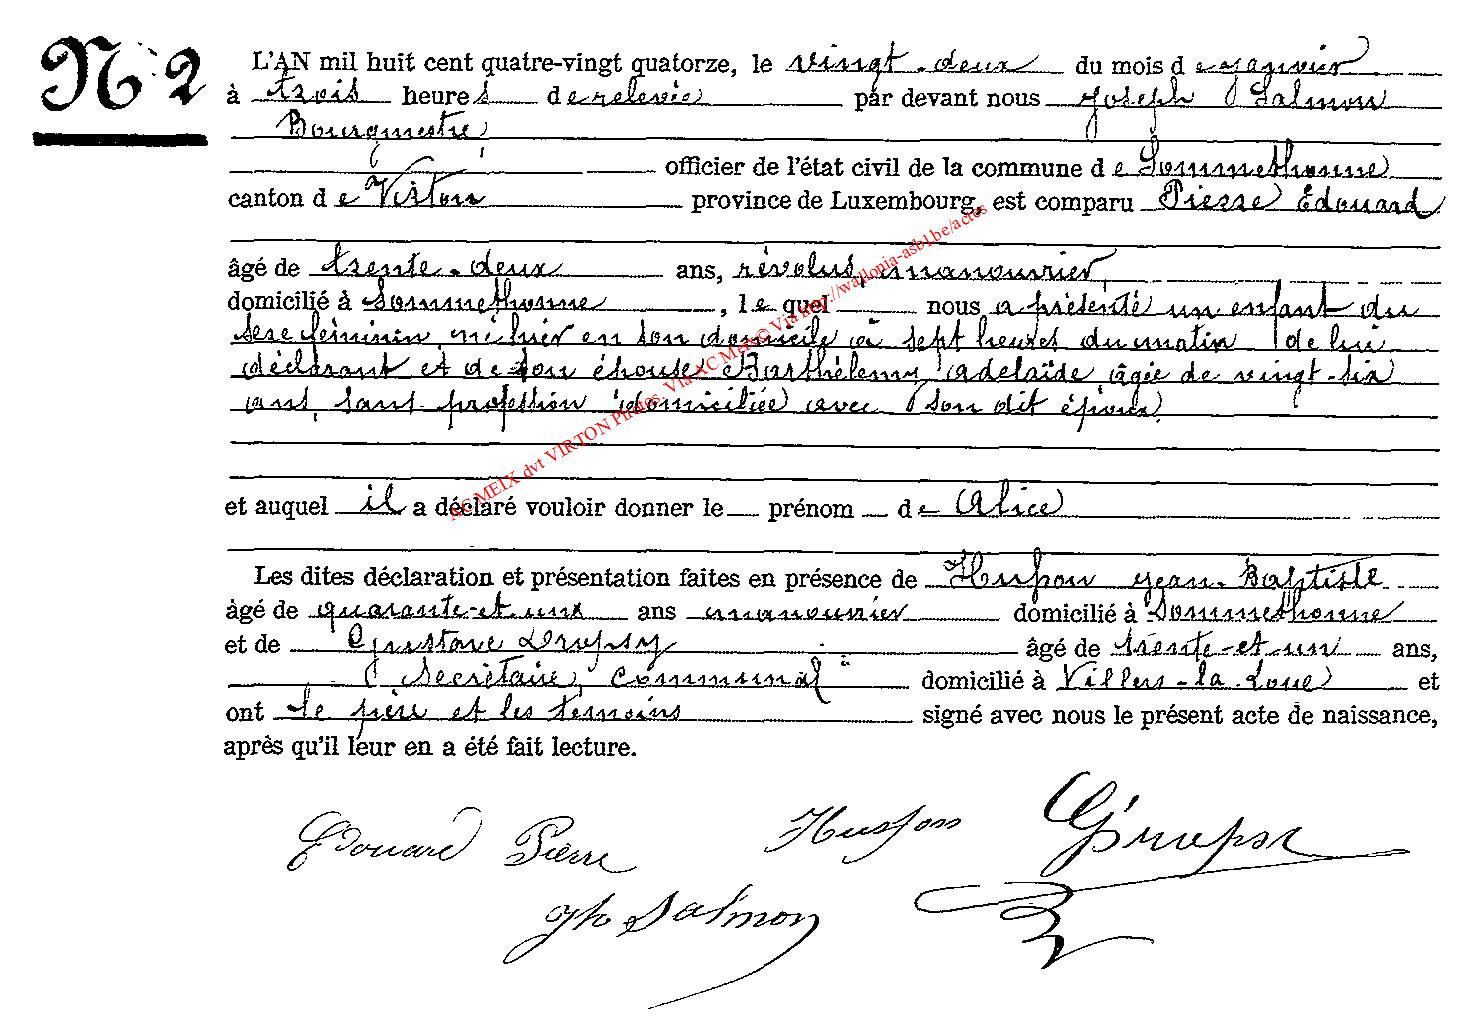 N° 2
L'AN mil huit cent quatre-vingt quatorze, le vingt-deux du mois de janvier
à trois heures de relevée par devant nous Joseph Salmon
Bourgmestre,
officier de l'état civil de la commune de Sommethonne
canton de Virton province de Luxembourg, est comparu Pierre Édouard
âgé de trente-deux ans, révolus, manouvrier,
domicilié à Sommethonne, lequel nous a présenté un enfant du
sexe féminin, né hier en son domicile à sept heures du matin de lui
déclarant et de son épouse Barthélemy Adelaïde, âgée de vingt-six
ans, sans profession domiciliée avec son dit époux.
et auquel il a déclaré vouloir donner le prénom de Alice
Les dites déclaration et présentation faites en présence de Husson Jean-Baptiste
âgé de quarante-et-un ans manouvrier domicilié à Sommethonne
et de Gustave Drupsy âgé de trente-et-un ans,
Secrétaire communal domicilié à Villers-la-Loue et
ont le père et les témoins signé avec nous le présent acte de naissance,
après qu'il leur en a été fait lecture.
Edouard Pierre Husson
Jh Salmon
AC MEIX dvt VIRTON Pirates, Via AC Meix© Via http://wallonia-asbl.be/actes